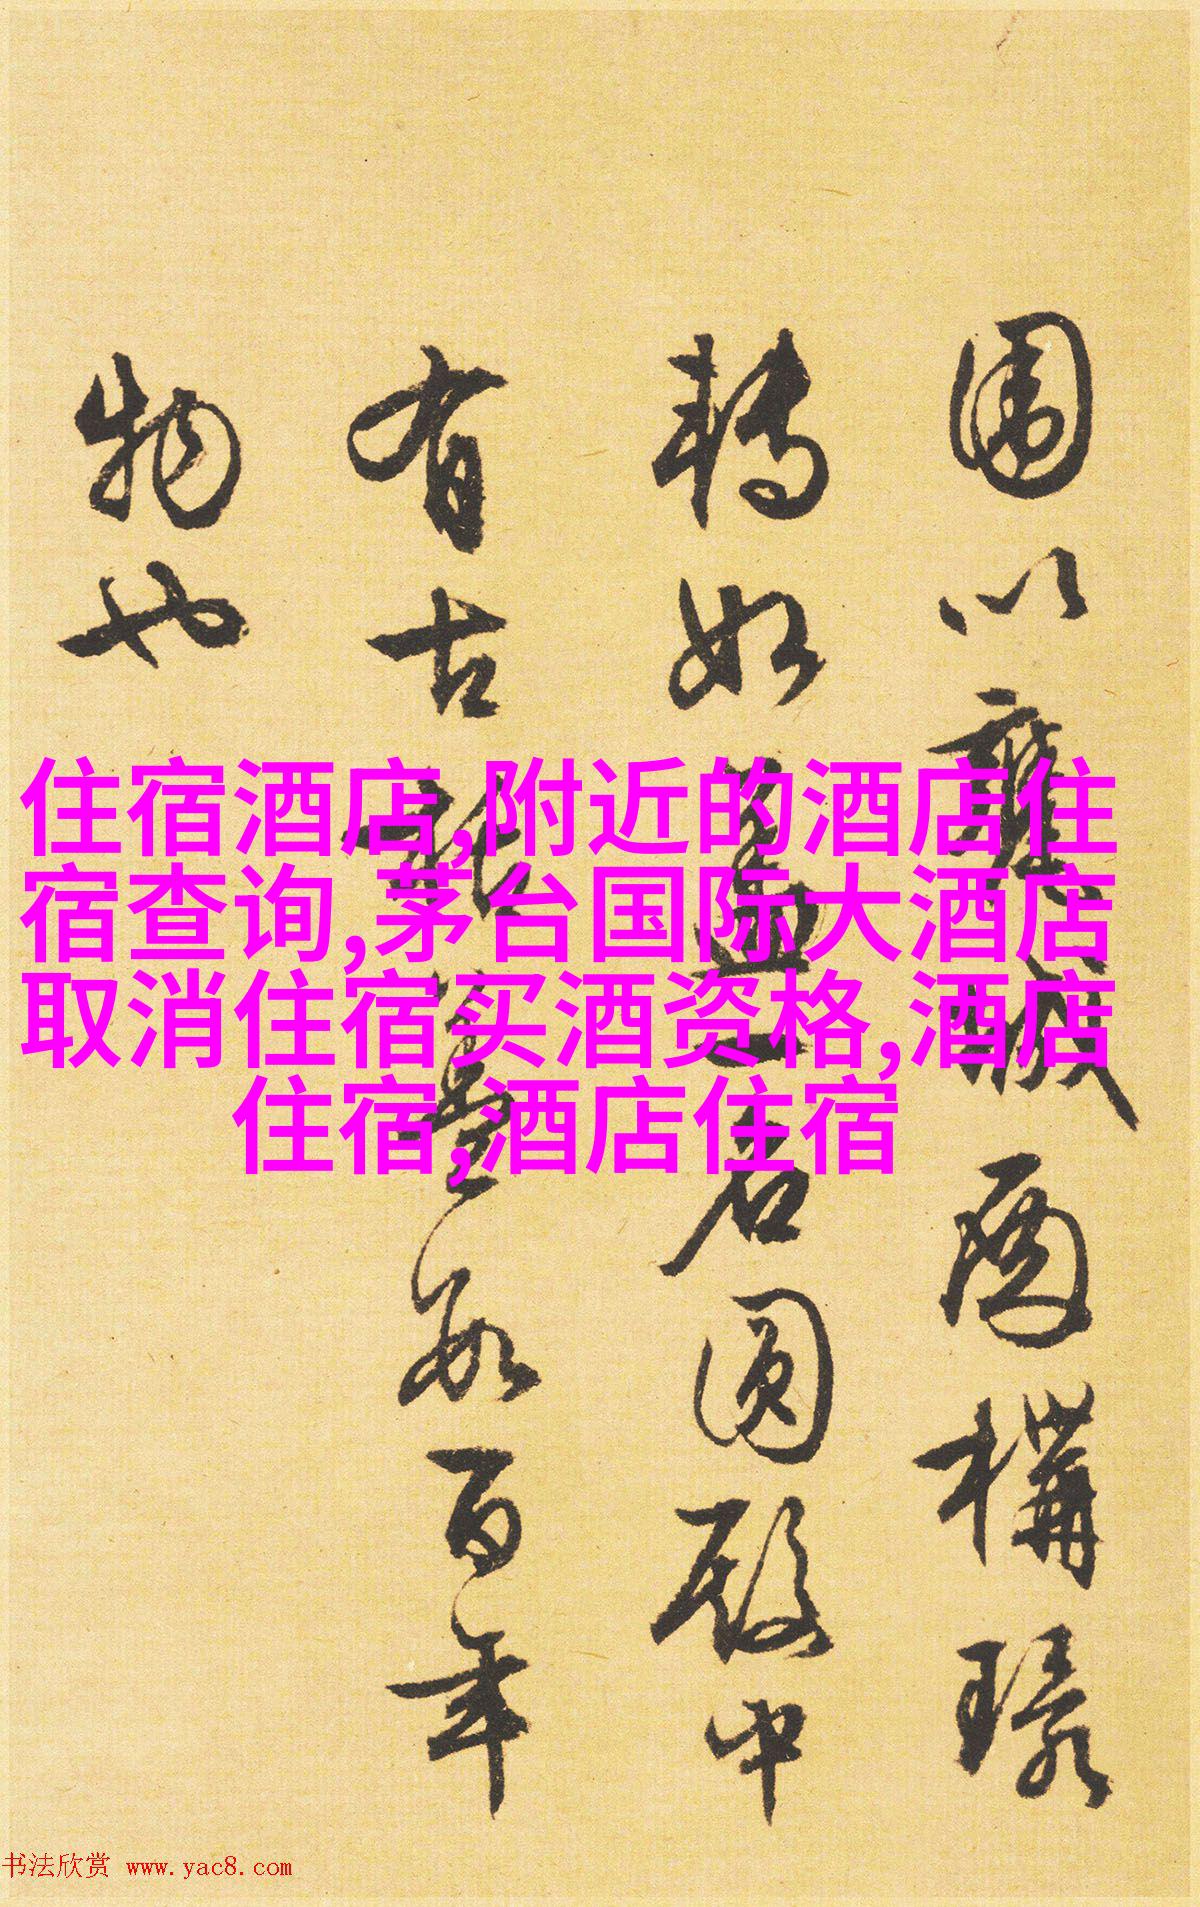 圍以甕城構環
轉如蓋一名圓殿中
有古數百年
物也
住宿酒店,附近的酒店住
宿查询,茅台国际大酒店
取消住宿买酒资格,酒店
住宿,酒店住宿
书法欣赏 www.yac8.com